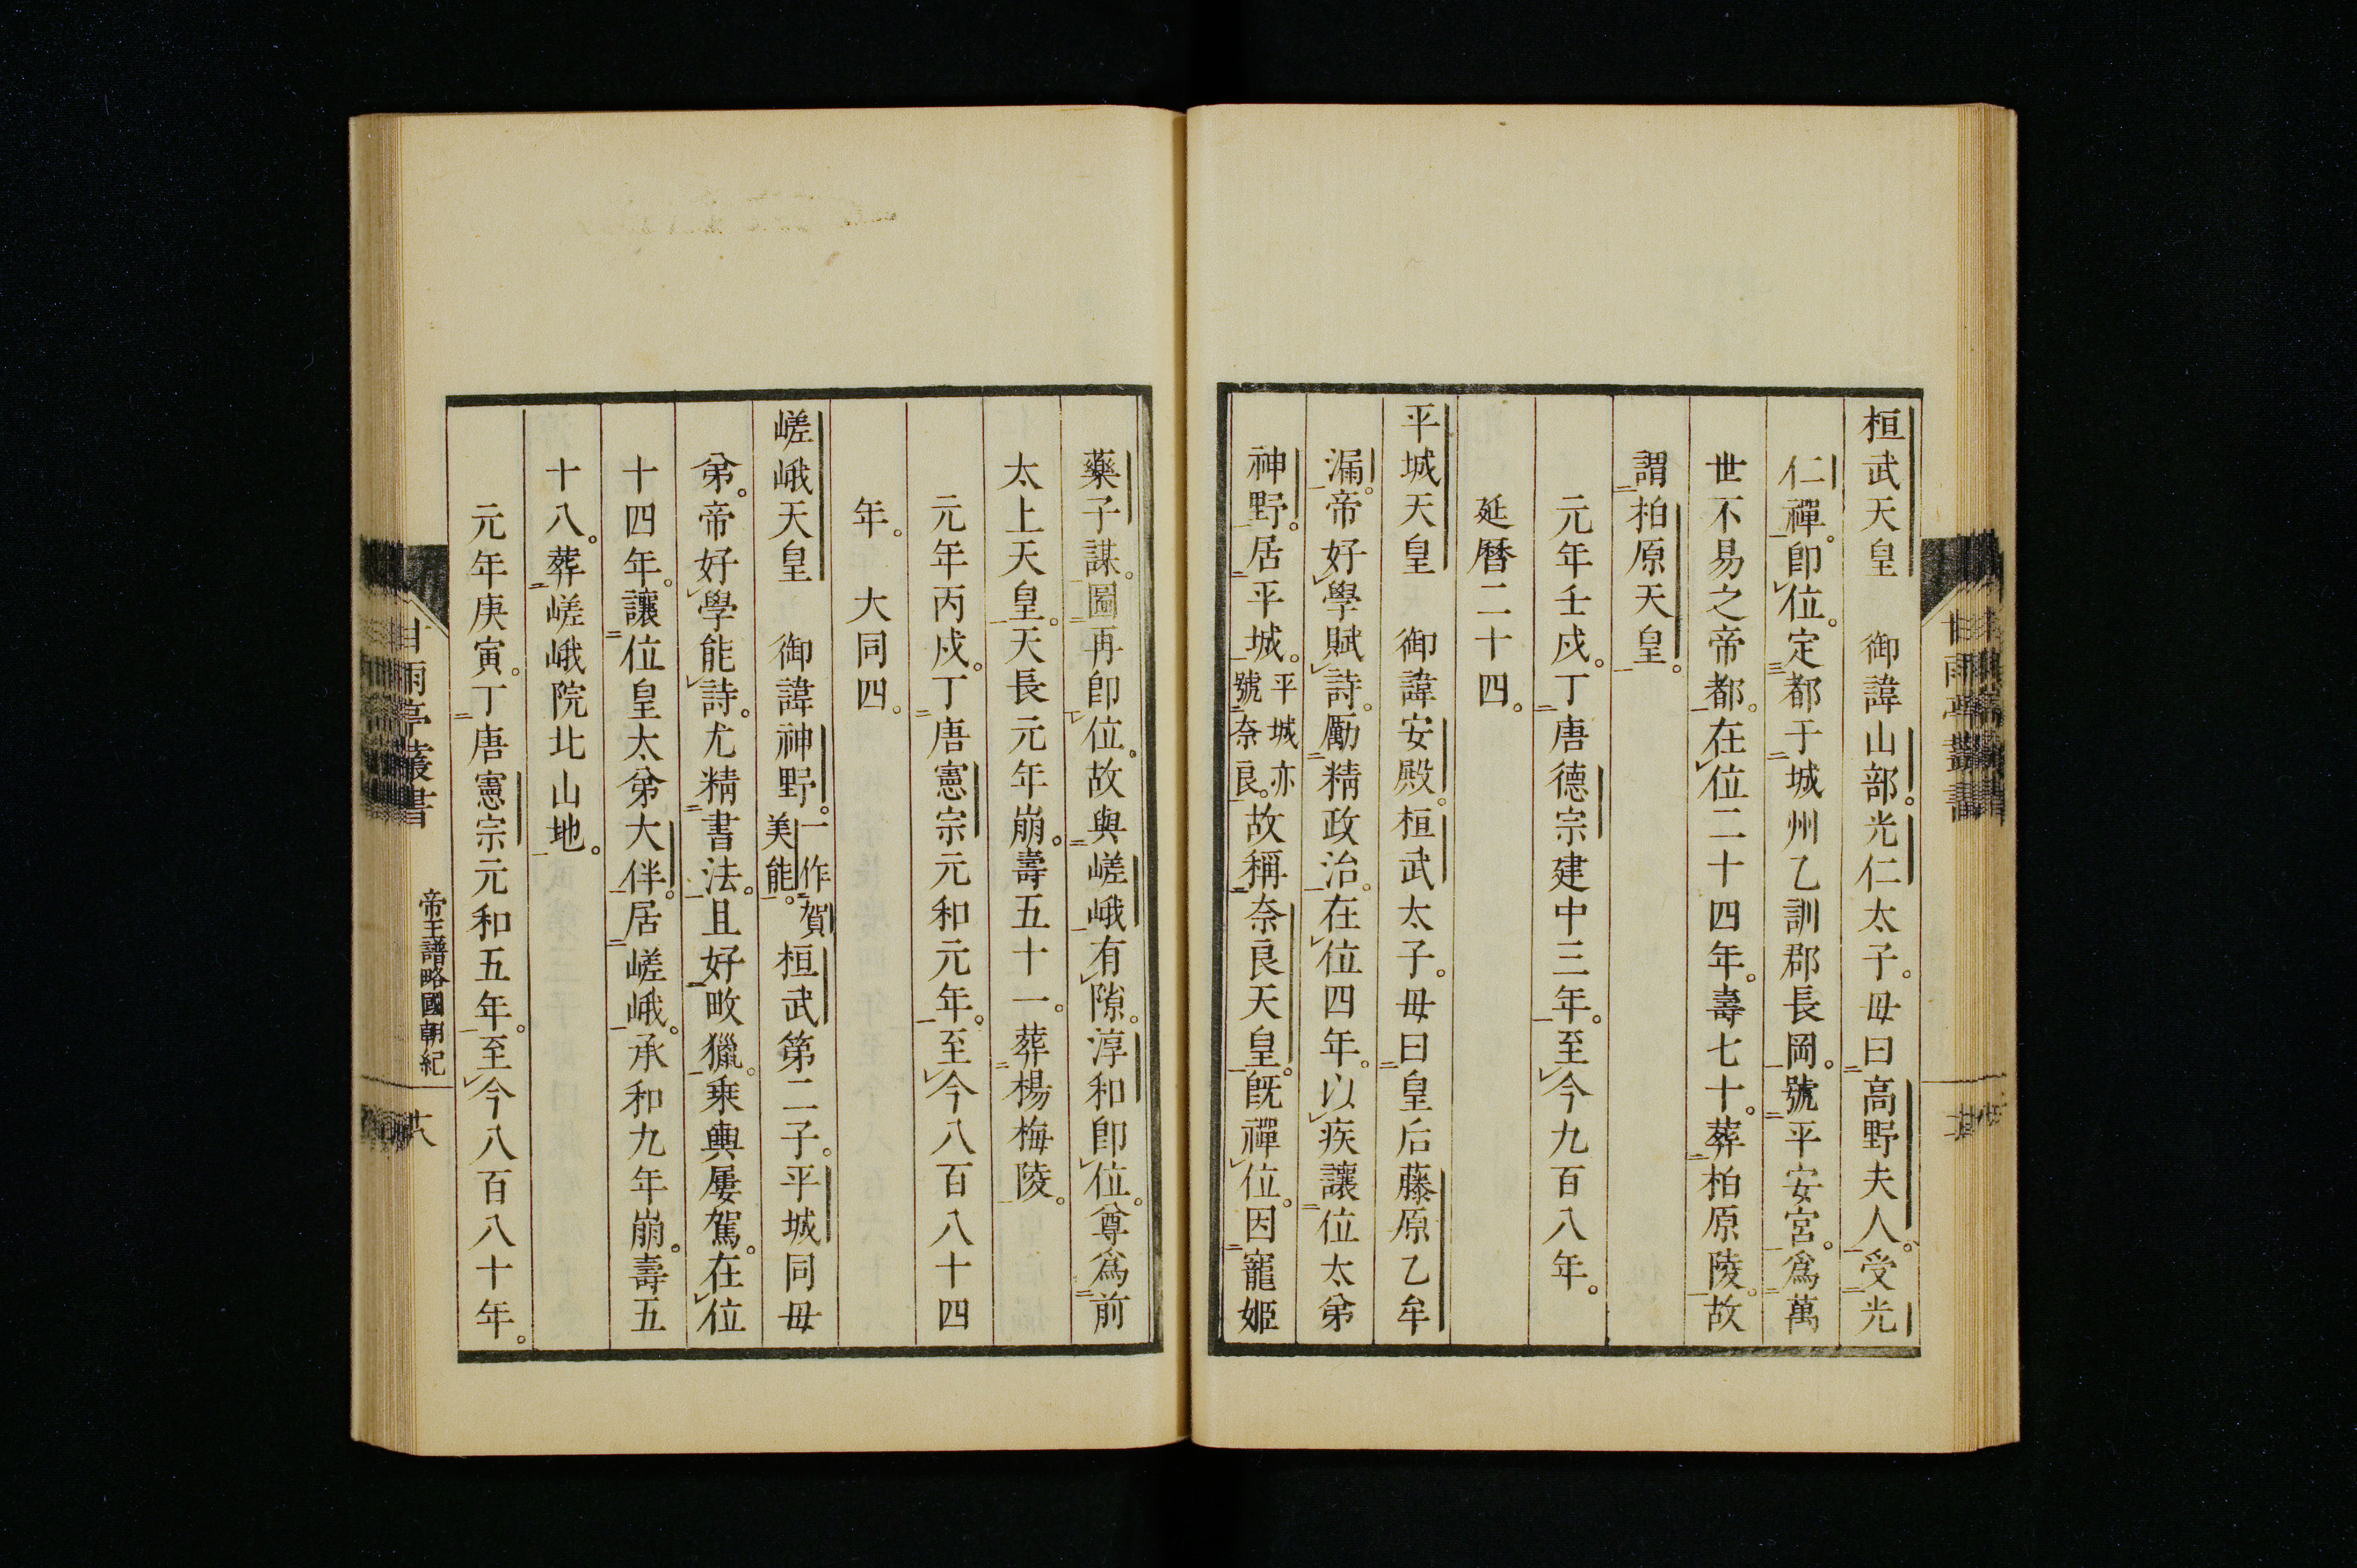 桓武天皇　御諱山部。光仁太子。母曰高野夫人。受光
仁禪。卽位。定都于城州乙訓郡長岡。號平安宮。爲萬
世不易之帝都。在位二十四年。壽七十。葬柏原陵。故
謂柏原天皇。
元年壬戌。丁唐德宗建中三年。至今九百八年。
延曆二十四。
平城天皇　御諱安殿。桓武太子。母曰皇后藤原乙牟
漏。帝好學賦詩。勵精政治。在位四年。以疾讓位太弟
神野。居平城。平城亦號奈良。故稱奈良天皇。旣禪位。因寵姬
藥子謀。圖再卽位。故與嵯峨有隙。淳和卽位。尊爲前
太上天皇。天長元年崩。壽五十一。葬楊梅陵。
元年丙戌。丁唐憲宗元和元年。至今八百八十四
年。　大同四。
嵯峨天皇　御諱神野。一作賀美能。桓武第二子。平城同母
弟。帝好學能詩。尤精書法。且好畋獵。乘輿屢駕。在位
十四年。讓位皇太弟大伴。居嵯峨。承和九年崩。壽五
十八。葬嵯峨院北山地。
元年庚寅。丁唐憲宗元和五年。至今八百八十年。
甘雨亭叢書
帝王譜略國朝紀
廿八